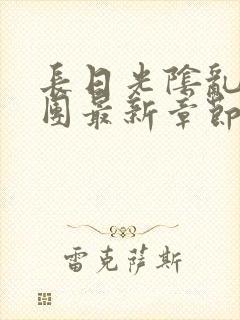 長日光陰亂
團最新章節
雷克薩斯